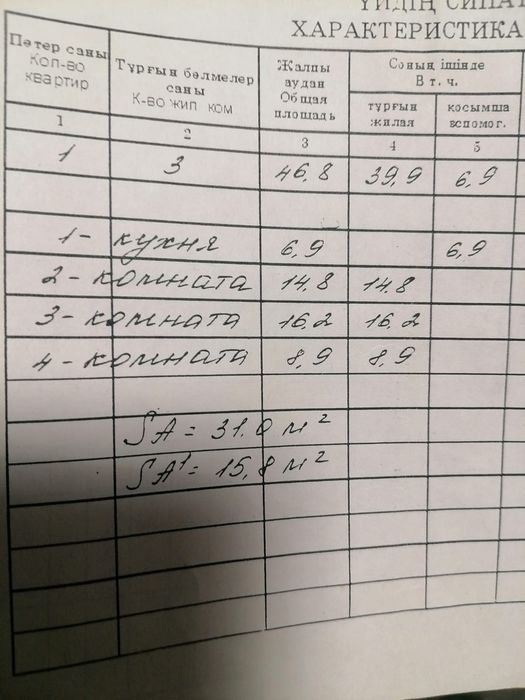 ҮЙДІҢ СИПАТ
ХАРАКТЕРИСТИКА
Пәтер саны
Кол-во
квартир
Тұрғын бөлмелер
саны
К-во жил ком
Жалпы
аудан
Общая
площадь
Соның ішінде
В т. ч.
тұрғын
жилая
қосымша
вспомог.
1 2 3 4 5
1 3 46,8 39,9 6,9
1- кухня 6,9 6,9
2- комната 14,8 14,8
3- комната 16,2 16,2
4- комната 8,9 8,9
SA = 31.0 м²
SA¹ = 15,8 м²